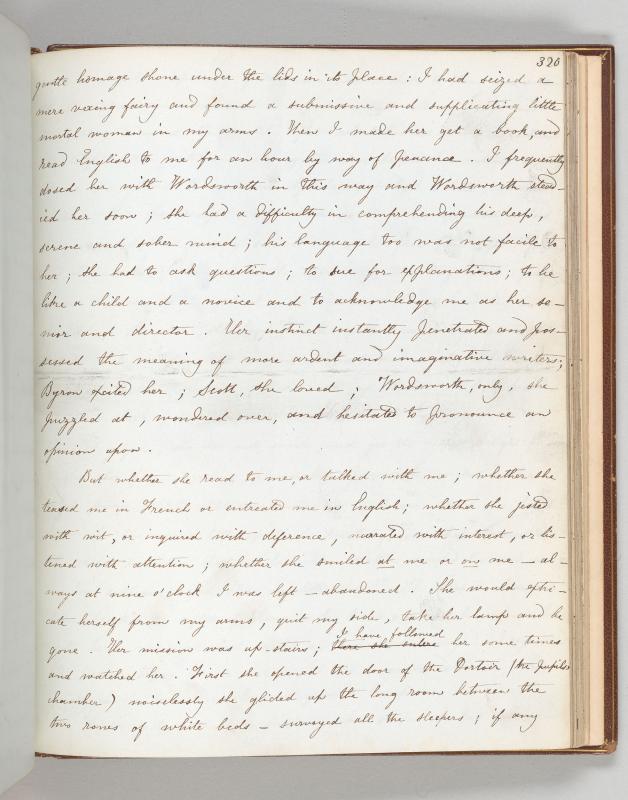 320
gentle homage shone under the lids in its place : I had seized a
mere vexing fairy and found a submissive and supplicating little
mortal woman in my arms . Then I made her get a book, and
read English to me for an hour by way of penance . I frequently
dosed her with Wordsworth in this way and Wordsworth stead-
ied her soon ; she had a difficulty in comprehending his deep,
serene and sober mind ; his language too was not facile to
her ; she had to ask questions ; to sue for explanations ; to be
like a child and a novice and to acknowledge me as her se-
nior and director . Her instinct instantly penetrated and pos-
sessed the meaning of more ardent and imaginative writers ;
Byron excited her ; Scott, she loved ; Wordsworth, only, she
puzzled at , wondered over, and hesitated to pronounce an
opinion upon .
But whether she read to me, or talked with me ; whether she
teased me in French or entreated me in English ; whether she jested
with wit, or inquired with deference, narrated with interest, or lis-
tened with attention ; whether she smiled at me or on me — al-
ways at nine o'clock I was left — abandoned . She would extri-
cate herself from my arms , quit my side , take her lamp and be
I have followed
gone . Her mission was up-stairs ; there she enters her some times
and watched her . First she opened the door of the Dortoir (the pupils'
chamber) noiselessly she glided up the long room between the
two rows of white beds — surveyed all the sleepers ; if any